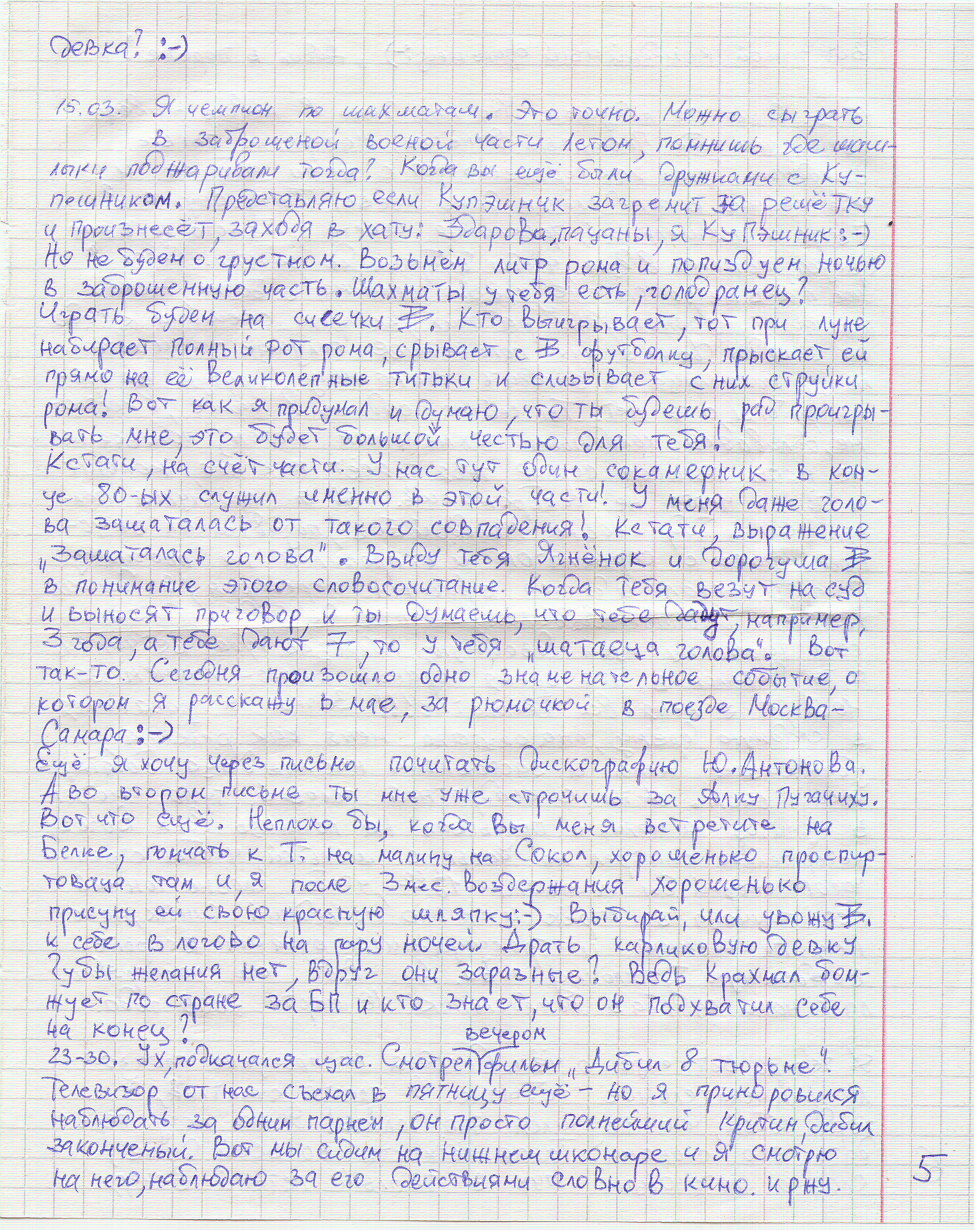 девка? :-)
15.03. Я чемпион по шахматам. Это точно. Можно сыграть
в заброшеной военой части летом, помнишь где шаш-
лыки поджаривали тогда? Когда вы ещё были дружками с Ку-
пешником. Представляю если Купэшник загремит за решётку
и произнесёт, заходя в хату: Здарова, пацаны, я КуПэшник :-)
Но не будем о грустном. Возьмём литр рома и попиздуем ночью
в заброшенную часть. Шахматы у тебя есть, голодранец?
Играть будем на сисечки В. Кто выигрывает, тот при луне
набирает полный рот рома, срывает с В футболку, прыскает ей
прямо на её великолепные титьки и слизывает с них струйки
рома! Вот как я придумал и думаю, что ты будешь рад проигры-
вать мне, это будет большой честью для тебя!
Кстати, на счёт части. У нас тут один сокамерник в кон-
це 80-ых служил именно в этой части! У меня даже голо-
ва зашаталась от такого совпадения! Кстати, выражение
„Зашаталась голова". Введу тебя Ягнёнок и дорогуша В
в понимание этого словосочитание. Когда тебя везут на суд
и выносят приговор, и ты думаешь, что тебе дадут, например,
3 года, а тебе дают 7, то у тебя „шатаеца голова". Вот
так-то. Сегодня произошло одно знаменательное событие, о
котором я расскажу в мае, за рюмочкой в поезде Москва-
Самара :-)
Ещё я хочу через письмо почитать дискографию Ю. Антонова.
А во втором письме ты мне уже строчишь за Алку Пугачиху.
Вот что ещё. Неплохо бы, когда вы меня встретите на
Белке, помчать к Т. на малину на Сокол, хорошенько проспир-
товаца там и, я после 3 мес. воздержания хорошенько
присуну ей свою красную шляпку :-) Выбирай, или увожу В.
к себе в логово на пару ночей. Драть карликовую девку
Губы желания нет, вдруг они заразные? Ведь Крахмал бом-
жует по стране за БП и кто знает, что он подхватил себе
на конец?
23-30. Ух, подкачался щас. Смотрел вечером фильм „Дибил в тюрьме".
Телевизор от нас съехал в пятницу ещё – но я приноровился
наблюдать за одним парнем, он просто полнейший критин, дибил
законченый. Вот мы сидим на нижнем шконаре и я смотрю
на него, наблюдаю за его действиями словно в кино. и ржу.
5